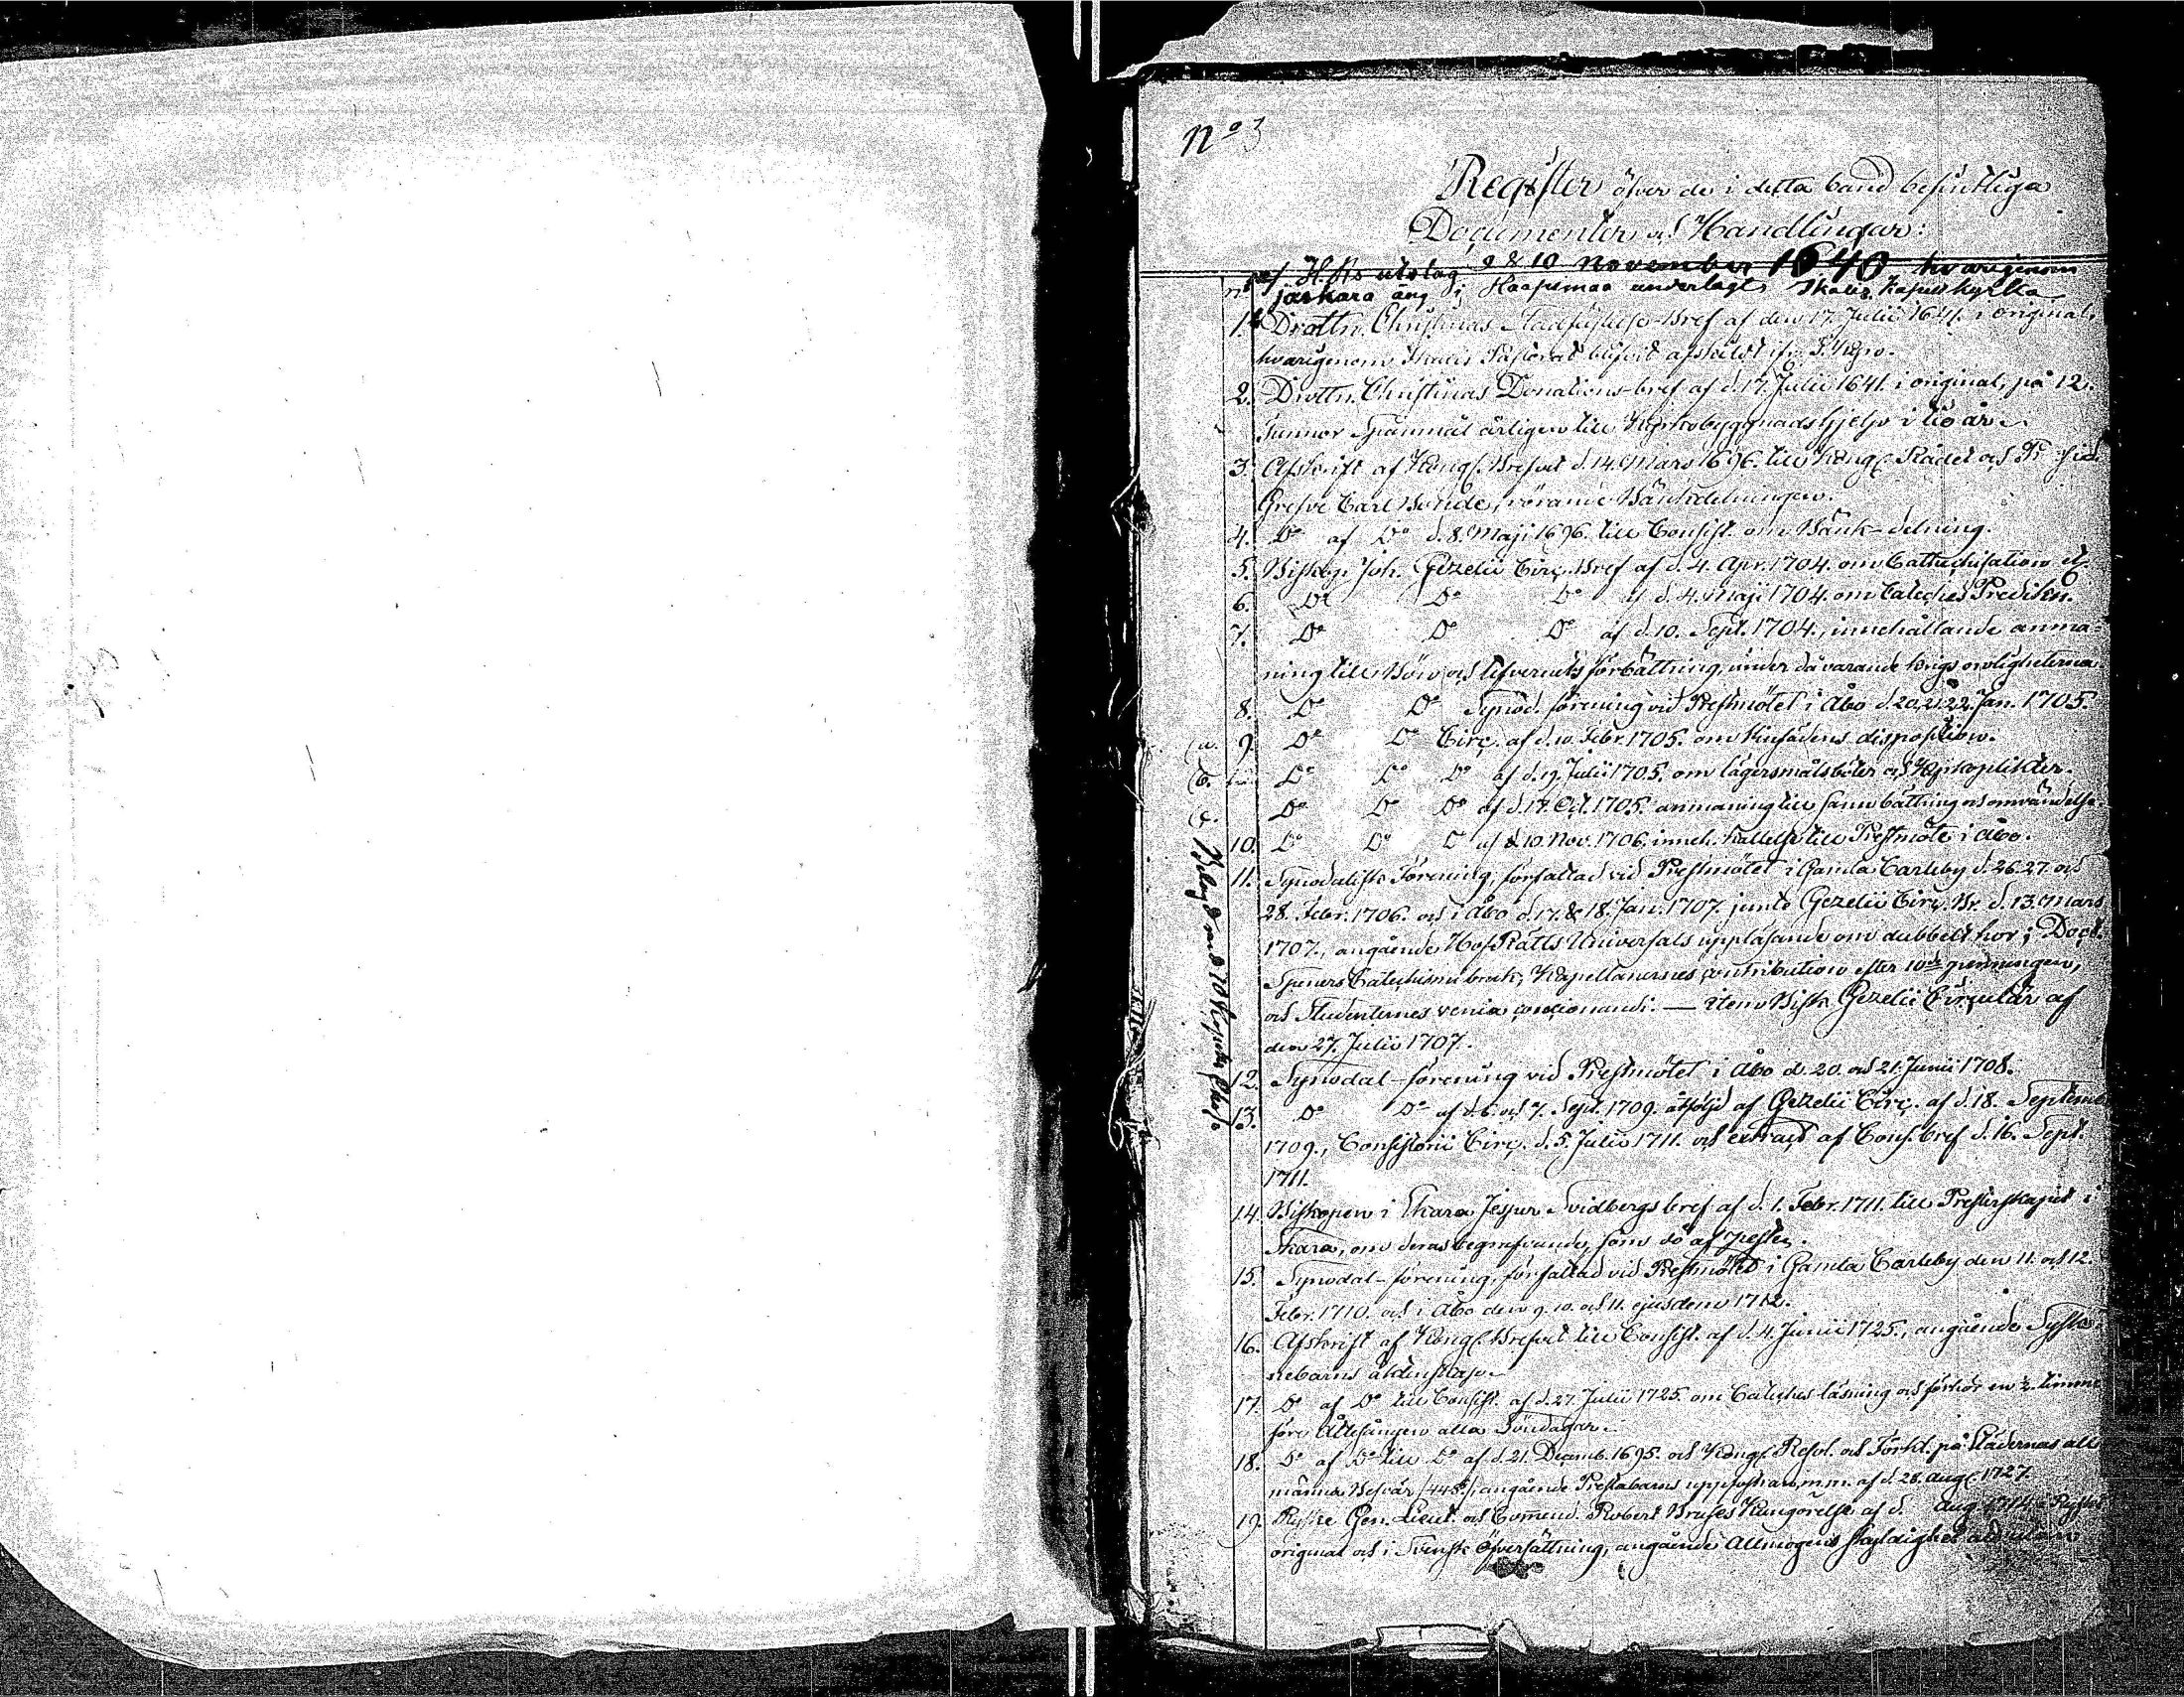 No 3
Register öfver de i detta band befintliga
Documenter och Handlingar:
af H. Ks utslag d 10 November 1640 hvarigenom
äng i Haapimaa underlagts Kapellkyrka
1. Drottn. Christinas Stadfästelse-Bref af den 17. Julii 1641. i original,
hvarigenom Pastorat blifvit afskildt ifr.
2. Drottn. Christinas Donations-bref af d. 17. Julii 1641. i original, på 12.
Tunnor Spanmål årligen till Kyrkobyggnadshjelp i tio år.
3. Afskrift af Kongl. Brefvet d. 14. Mars 1696. till Kongl. Rådet och
Grefve Carl Bonde, rörande Bänkdelningen.
4. Do af Do d. 8. Maji 1696. till Consist. om Bänk-delning.
5. Biskop Joh. Gezelii Circ. Bref af d. 4. Apr. 1704. om Cathechisation
6. Do Do Do af d. 4. Maji 1704. om Cateches Predikn.
7. Do Do Do af d. 10. Sept. 1704., innehållande anma-
ning till Bön och lefvernets förbättring, under då varande krigs oroligheterna.
8. Do Do Synod. förening vid Prestmötet i Åbo d. 20, 21, 22. Jan. 1705.
(a. 9. Do Do Circ. af d. 10. Febr. 1705. om disposition.
(b. Do Do Do af d. 19. Julii 1705. om lägersmålsböter och Kyrkoplikter.
(c. Do Do Do af d. 17. Oct. 1705. anmaning till sann bättring och omvändelse.
10. Do Do Do af d. 10. Nov. 1706. inneh. kallelse till Prestmöte i Åbo.
11. Synodalisk Förening, författad vid Prestmötet i Gamla Carleby d. 26. 27. och
28. Febr. 1706. och i Åbo d. 17. & 18. Jan. 1707. jemte Gezelii Circ. Br. d. 13. Mars
1707., angående HofRätts Universals uppläsande om dubbelt hor; Doct.
Speners Catechismi bruk; Kapellanernes contribution efter 10de penningen,
och Studenternes venia concionandi. — item Bisk. Gezelii Circulär af
den 27. Julii 1707.
12. Synodal-förening vid Prestmötet i Åbo d. 20. och 21. Junii 1708.
13. Do Do af d. 6. och 7. Sept. 1709. åtföljd af Gezelii Circ. af d. 18. Septemb
1709., Consistorii Circ. d. 5. Julii 1711. och extract af Cons. bref d. 16. Sept.
1711.
14. Biskopen i Skara Jesper Svidbergs bref af d. 1. Febr. 1711. till Presterskapet i
Skara, om deras begrafvande, som dö af pesten.
15. Synodal-förening, författad vid Prestmötet i Gamla Carleby den 11. och 12.
Febr. 1710. och i Åbo den 9. 10. och 11. ejusdem 1712.
16. Afskrift af Kongl. Brefvet till Consist. af d. 4. Junii 1725., angående Sysko-
nebarns äktenskap.
17. Do af Do till Consist. af d. 27. Julii 1725. om Cateches läsning och förhör en ½ timme
före Ottesången alla Söndagar.
18. Do af Do till Do af d. 21. Decemb. 1695. och Kongl. Resol. och Förkl. på Städernas all-
männa Besvär angående Prestabarns uppfostran, m.m. af d. 28. Aug. 1727.
19. Ryske Gen. Lieut. och Commend. Robert Bruses Kungörelse af d. Aug. 1714. i Ryskt
original och i Svensk öfversättning, angående Allmogens skyldighet